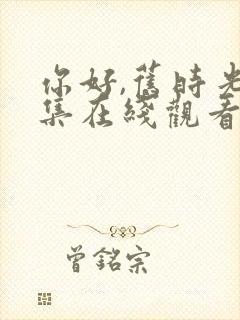 你好,舊時光
集在綫觀看
曾銘宗